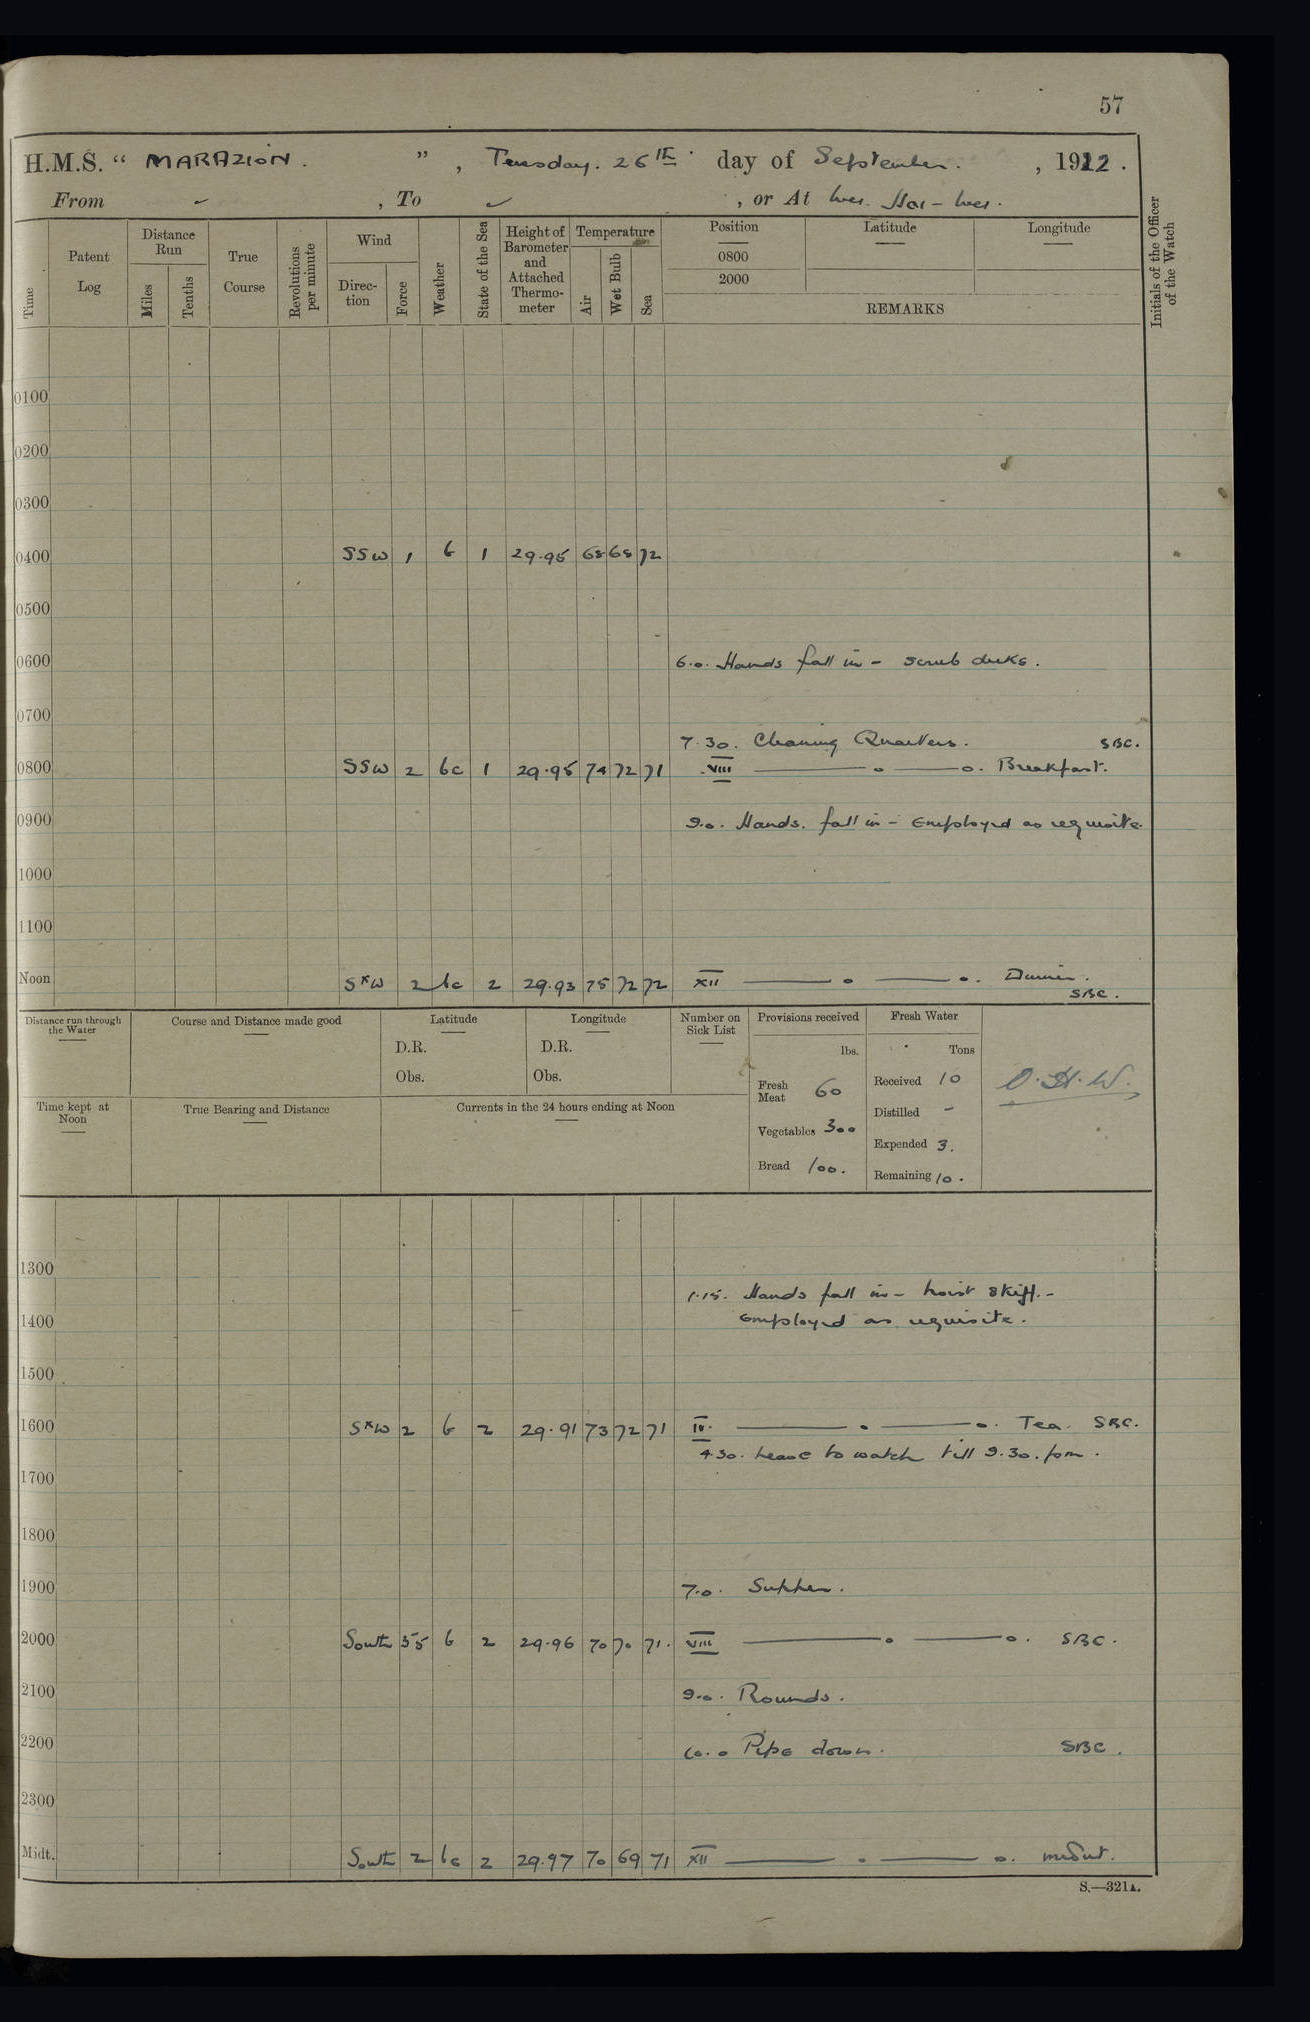 57
H.M.S. “ MARAZION. ” , Tuesday. 26th day of September. , 1922.
From ✓ , To ✓ , or At Wei-Hai-Wei.
Time
Patent Log
Distance Run
Miles
Tenths
True Course
Revolutions per minute
Wind
Direction
Force
Weather
State of the Sea
Height of Barometer and Attached Thermometer
Temperature
Air
Wet Bulb
Sea
Position
0800
2000
Latitude
Longitude
REMARKS
Initials of the Officer of the Watch
0100
0200
0300
0400 SSW 1 b 1 29.95 68 68 72
0500
0600 6.0. Hands fall in - scrub decks.
0700
7.30. Cleaning Quarters. SBC.
0800 SSW 2 bc 1 29.95 74 72 71 VIII ———o ———o. Breakfast.
0900 9.0. Hands. fall in - Employed as requisite.
1000
1100
Noon SxW 2 bc 2 29.93 75 72 72 XII ———o ———o. Dinner.
SBC.
Distance run through the Water
Course and Distance made good
Latitude
D.R.
Obs.
Longitude
D.R.
Obs.
Number on Sick List
Provisions received
lbs.
Fresh Meat 60
Vegetables 300
Bread 100.
Fresh Water
Tons
Received 10
Distilled -
Expended 3.
Remaining 10.
O.H.W.
Time kept at Noon
True Bearing and Distance
Currents in the 24 hours ending at Noon
1300
1.15. Hands fall in - hoist skiff. -
1400 Employed as requisite.
1500
1600 SxW 2 b 2 29.91 73 72 71 IV. ———o ———o. Tea. SBC.
4.30. Leave to watch till 9.30. pm.
1700
1800
1900 7.0. Supper.
2000 South 35 b 2 29.96 70 70 71. VIII ———o ———o. SBC.
2100 9.0. Rounds.
2200 10.0 Pipe down. SBC.
2300
Midt. South 2 bc 2 29.97 70 69 71 XII ———o ———o.
S.—321A.